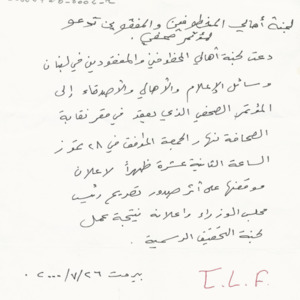 لجنة أهالي المخطوفين والمفقودين تدعو
لمؤتمر صحفي
دعت لجنة أهالي المخطوفين والمفقودين في لبنان
وسائل الإعلام والأهالي والأصدقاء إلى
المؤتمر الصحفي الذي يعقد في مقر نقابة
الصحافة نهار الجمعة الموافق في ٢٨ تموز
الساعة الثانية عشرة ظهراً لإعلان
موقفها على أثر صدور تصريح رئيس
مجلس الوزراء وإعلانه نتيجة عمل
لجنة التحقيق الرسمية.
بيروت ٢٦/٧/٢٠٠٠.
I.L.F.